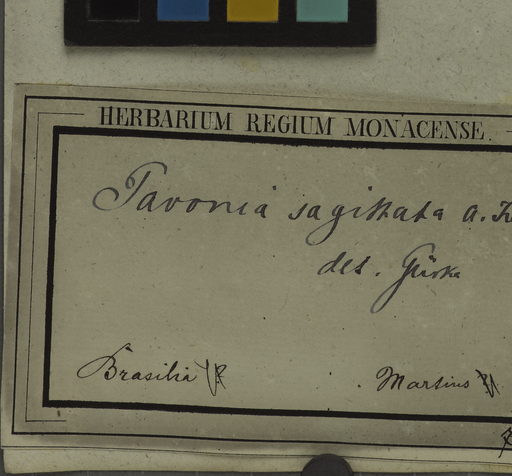 HERBARIUM REGIUM MONACENSE.
Pavonia sagittata a.
det. Gürke
Brasilia
Martius